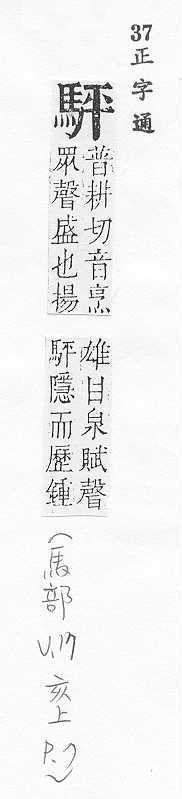 37正字通
駍
普耕切音烹
眾聲盛也揚
雄甘泉賦聲
駍隱而歷鍾
(馬部 V.17 亥上 P.7)